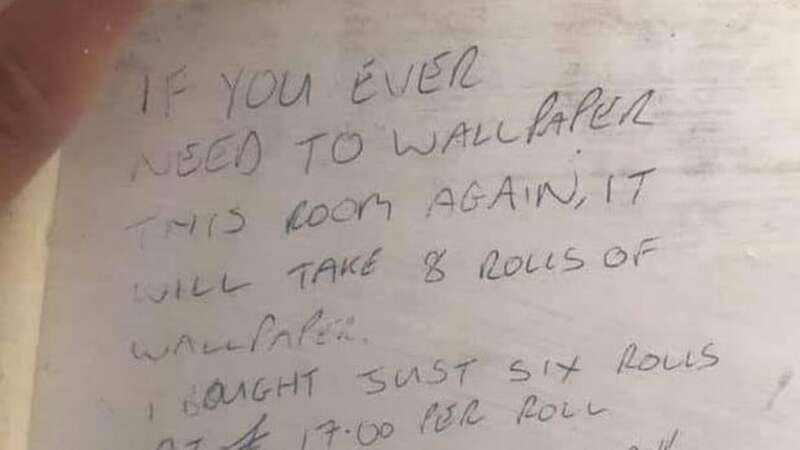 IF YOU EVER
NEED TO WALLPAPER
THIS ROOM AGAIN, IT
WILL TAKE 8 ROLLS OF
WALLPAPER.
I BOUGHT JUST SIX ROLLS
AT £ 17.00 PER ROLL